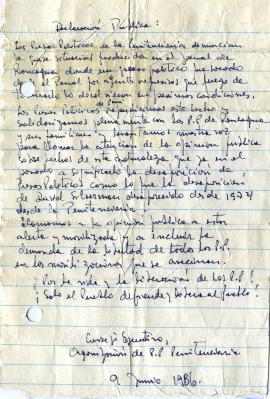 Declaración Pública:
Los Presos Políticos de la Penitenciaría denuncian
la grave situación producida en el penal de
Rancagua donde un preso político fue sacado
de el Penal por agentes represivos que luego de
lo devolvieron en pésimas condiciones.
Los Presos Políticos repudiamos este hecho y
solidarizamos plenamente con los P.P de Rancagua
y sus familiares y levantamos nuestra voz
para llamar la atención de la opinión pública
sobre hechos de esta naturaleza que ya en el
pasado a significado la desaparición de
Presos Políticos como lo fue la desaparición
de David Silberman desaparecido desde 1974
desde la Penitenciaría.
Llamamos a la opinión pública a estar
alerta y movilizada y a incluir la
demanda de la libertad de todos los P.P.
en las movilizaciones que se avecinan.
¡Por la vida y la liberación de los P.P!
¡Solo el Pueblo defiende y libera al pueblo!
Consejo Ejecutivo,
Organización de P.P Penitenciaria
9 Junio 1986.